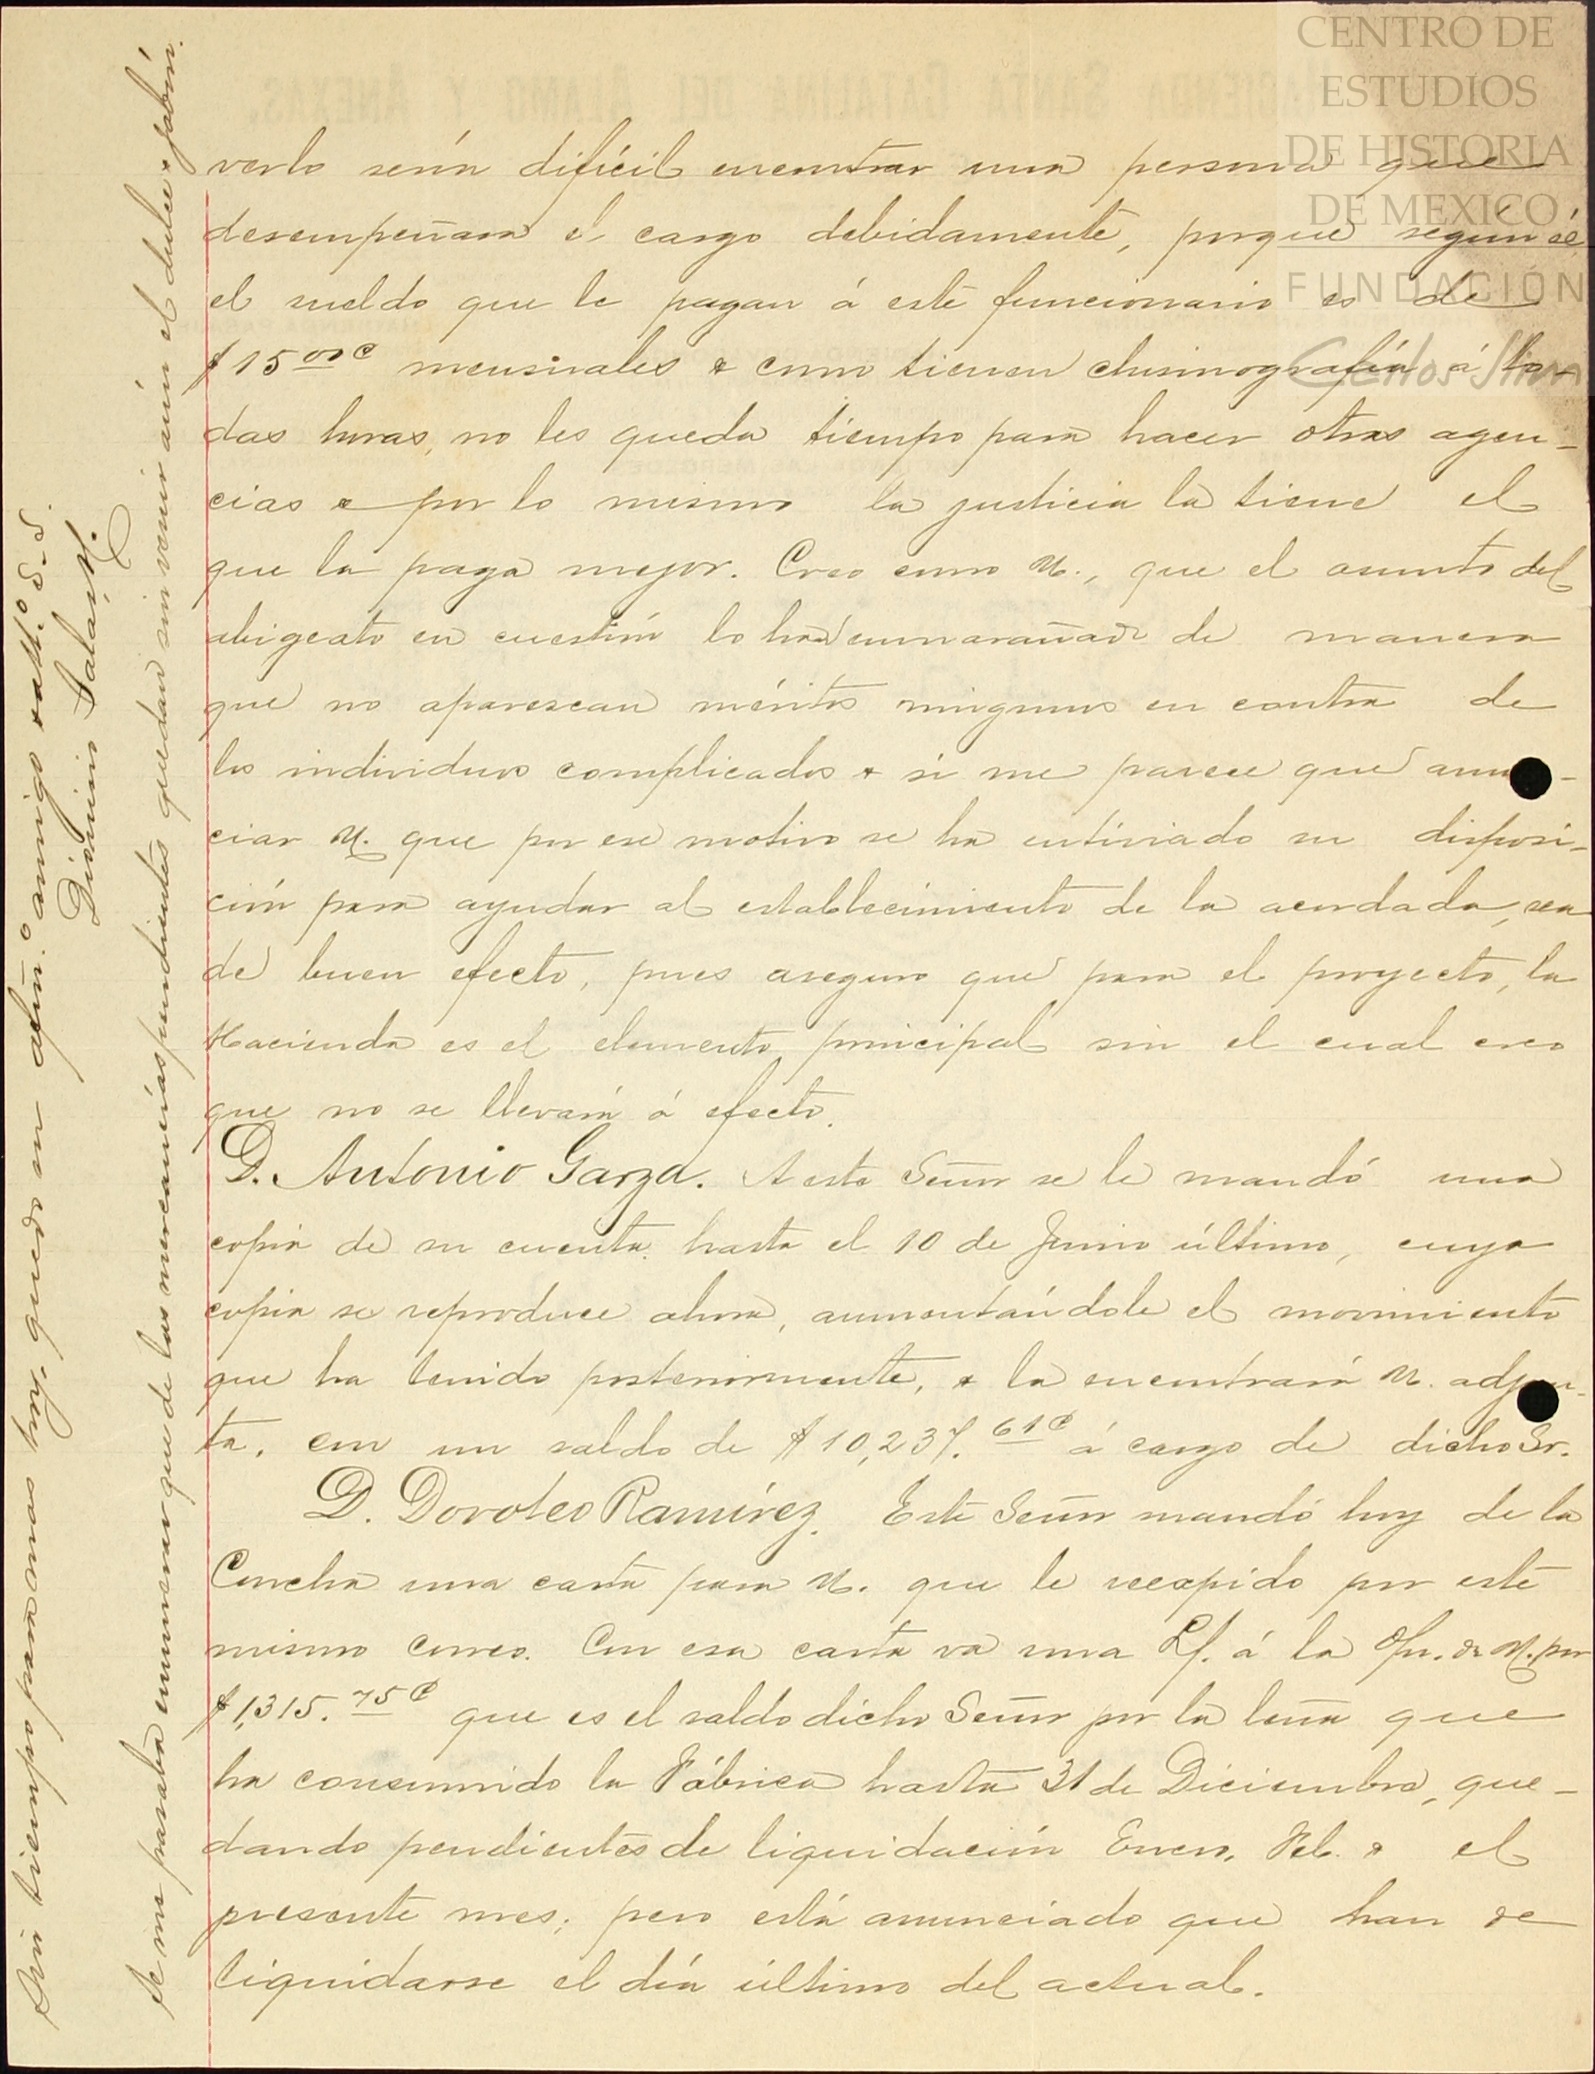 CENTRO DE
ESTUDIOS
DE HISTORIA
DE MEXICO
FUNDACIÓN
Carlos Slim
verlo sería difícil encontrar una persona que
desempeñara el cargo debidamente, porque según él
el sueldo que le pagan á este funcionario es de
$15 00 c mensuales & como tienen chismografía á to-
das horas, no les queda tiempo para hacer otras agen-
cias & por lo mismo la justicia la tiene el
que la paga mejor. Creo como U., que el asunto del
abigeato en cuestión lo han enmarañado de manera
que no aparescan méritos ningunos en contra de
los individuos complicados & si me parece que anun-
ciar U. que por ese motivo se ha entiviado su disposi-
ción para ayudar al establecimiento de la acordada, sea
de buen efecto, pues aseguro que para el proyecto, la
Hacienda es el elemento principal sin el cual creo
que no se llevará á efecto.
D. Antonio Garza. A este Señor se le mandó una
copia de su cuenta hasta el 10 de Junio último, cuya
copia se reproduce ahora, aumentándole el movimiento
que ha tenido posteriormente, & la encontrará U. adjun-
ta, con un saldo de $10,237. 61 c á cargo de dicho Sr.
D. Doroteo Ramírez. Este Señor mandó hoy de la
Concha una carta para U. que le reexpido por este
mismo correo. Con esa carta va una L/. á la Ofn. de U. por
$1,315. 75 c que es el saldo dicho Señor por la leña que
ha consumido la Fábrica hasta 31 de Diciembre, que-
dando pendientes de liquidación Enero, Feb. & el
presente mes; pero está anunciado que han de
liquidarse el día último del actual.
Se me pasaba comunicar que de las mercancías pendientes quedan sin venir aún el dulce & jabón.
Sin tiempo para mas hoy, quedo su afmo. amigo & atto. S. S.
Dionisio Salas M.